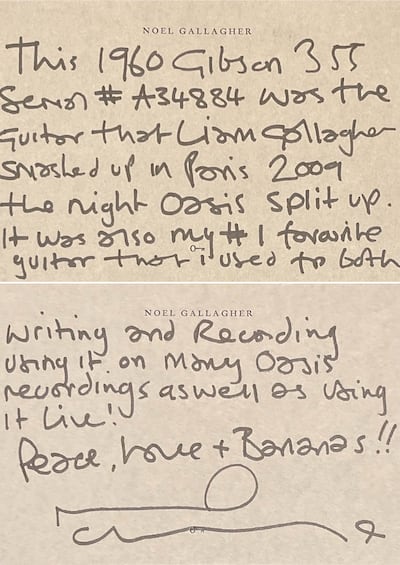 NOEL GALLAGHER
This 1960 Gibson 355
Serial # A34884 was the
guitar that Liam Gallagher
smashed up in Paris 2009
the night Oasis split up.
It was also my # 1 favourite
guitar that i used to both
NOEL GALLAGHER
Writing and Recording
using it on Many Oasis
recordings aswell as using
it Live!
Peace, Love + Bananas!!